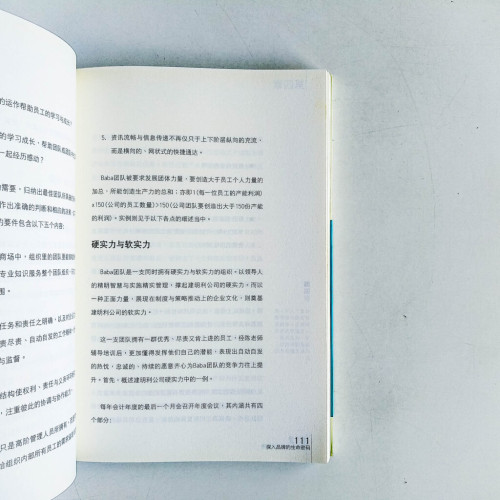 的运作帮助员工的学习与成长?
的学习成长,帮助团队
一起经历感动?
需要,归纳出最佳团队
作出准确的判断和
的要件包含以下五个内容:
商场中,组织里的团队
专业知识服务整个团队
围。
任务和责任之明确,以及
责尽责、自动自发的工作
与监督。
结构使权利、责任与义务
,注重彼此的协调与协作
只是高阶管理人员所拥有
给组织内部所有员工的
5. 资讯流畅与信息传递不再仅只于上下阶层纵向的充流,
而是横向的、网状式的快捷通达。
Baba团队被要求发展团体力量,要创造大于员工个人力量的
加总,所能创造生产力的总和;亦即1(每一位员工的产能利润)
x150(公司的员工数量)>150(公司团队要创造出大于150份产能
的利润)。实例则见于以下各点的概述当中。
硬实力与软实力
Baba团队是一支同时拥有硬实力与软实力的组织。以领导人
的精明智慧与实施精实管理,撑起建明利公司的硬实力。而以
一种正面力量,展现在制度与策略推动上的企业文化,则奠基
建明利公司的软实力。
这一支团队拥有一群优秀、尽责又肯上进的员工,经陈老师
辅导培训后,更加懂得发挥他们自己的潜能,表现出自动自发
的热忱,忠诚的、持续的愿意齐心为Baba团队的竞争力往上提
升。首先,概述建明利公司硬实力中的一例。
每年会计年度的最后一个月会召开年度会议,其内涵共有四
个部分:
111
融入品牌的生命密码